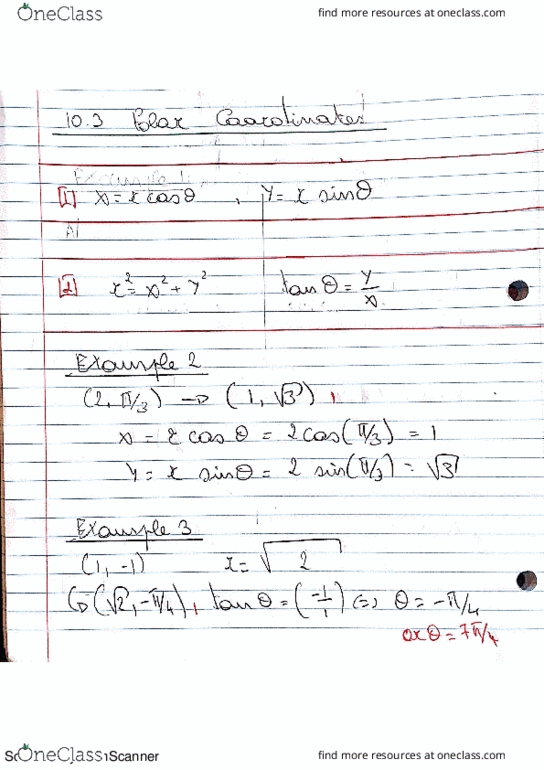 OneClass
find more resources at oneclass.com
10.3 Polar Coordinates
Example 1:
[1] x = r cosθ , y = r sinθ
[2] r² = x² + y² tan θ = y/x
Example 2
(2, π/3) → (1, √3)
x = r cos θ = 2 cos(π/3) = 1
y = r sinθ = 2 sin(π/3) = √3
Example 3
(1, -1) r = √2
↳ (√2, -π/4), tan θ = (-1/1) ⇔ θ = -π/4
or θ = 7π/4
OneClass
Scanner
find more resources at oneclass.com